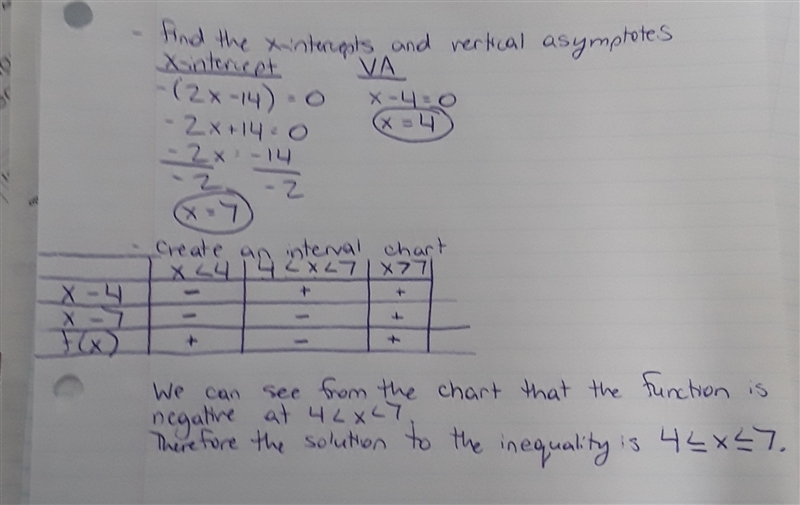 - find the x-intercepts and vertical asymptotes
x-intercept VA
-(2x-14)=0 x-4=0
-2x+14=0 x=4
-2x = -14
-2 -2
x=7
- Create an interval chart
x<4 4<x<7 x>7
x-4 - + +
x-7 - - +
f(x) + - +
We can see from the chart that the function is
negative at 4<x<7.
Therefore the solution to the inequality is 4≤x≤7.